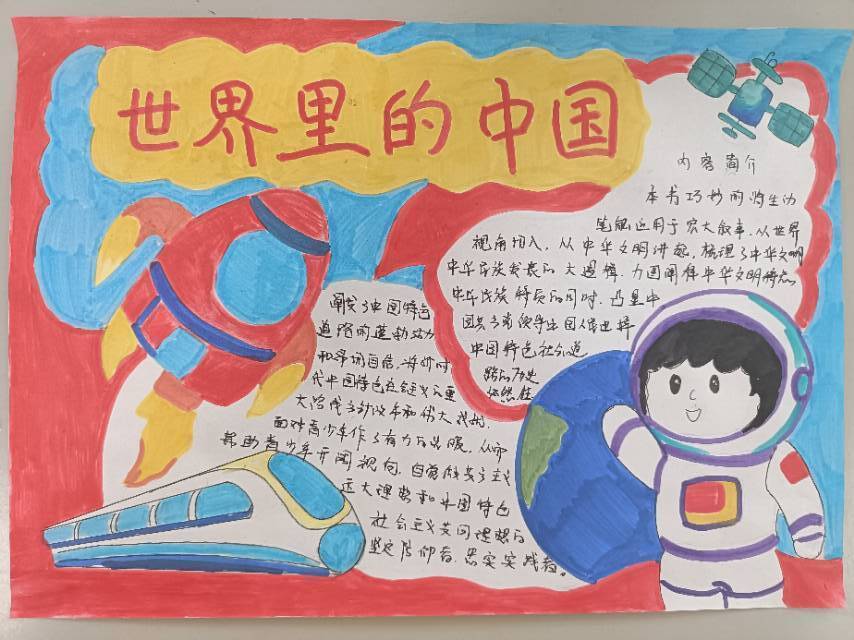 世界里的中国
内容简介
本书巧妙的将生动
笔触运用于宏大叙事,从世界
视角切入,从中华文明讲起,梳理了中华文明
中华民族发展的大逻辑,力图阐释中华文明特点
中华民族特质的同时,凸显中
国共产党领导中国人民选择
中国特色社会道
路的历史
必然性
阐发了中国特色
道路的蓬勃活力
和昂扬自信,将新时
代中国特色社会主义重
大治代
面对青少年作了有力的说服,从而
帮助青少年开阔视向,自觉做共产主义
远大理想和中国特色
社会主义共同理想的
坚定信仰者,忠实实践者。